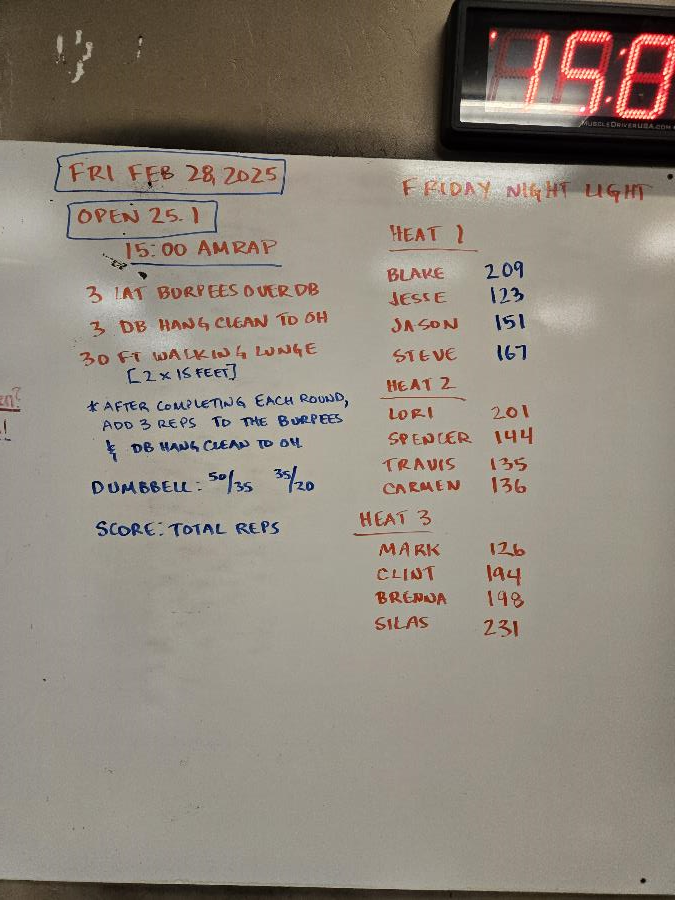 15:0
MUSCLEDRIVERUSA.COM
FRI FEB 28, 2025
OPEN 25.1
15:00 AMRAP
3 LAT BURPEES OVER DB
3 DB HANG CLEAN TO OH
30 FT WALKING LUNGE
[2 x 15 FEET]
* AFTER COMPLETING EACH ROUND,
ADD 3 REPS TO THE BURPEES
& DB HANG CLEAN TO OH
DUMBBELL: 50/35 35/20
SCORE: TOTAL REPS
FRIDAY NIGHT LIGHT
HEAT 1
BLAKE 209
JESSE 123
JASON 151
STEVE 167
HEAT 2
LORI 201
SPENCER 144
TRAVIS 135
CARMEN 136
HEAT 3
MARK 126
CLINT 194
BRENNA 198
SILAS 231